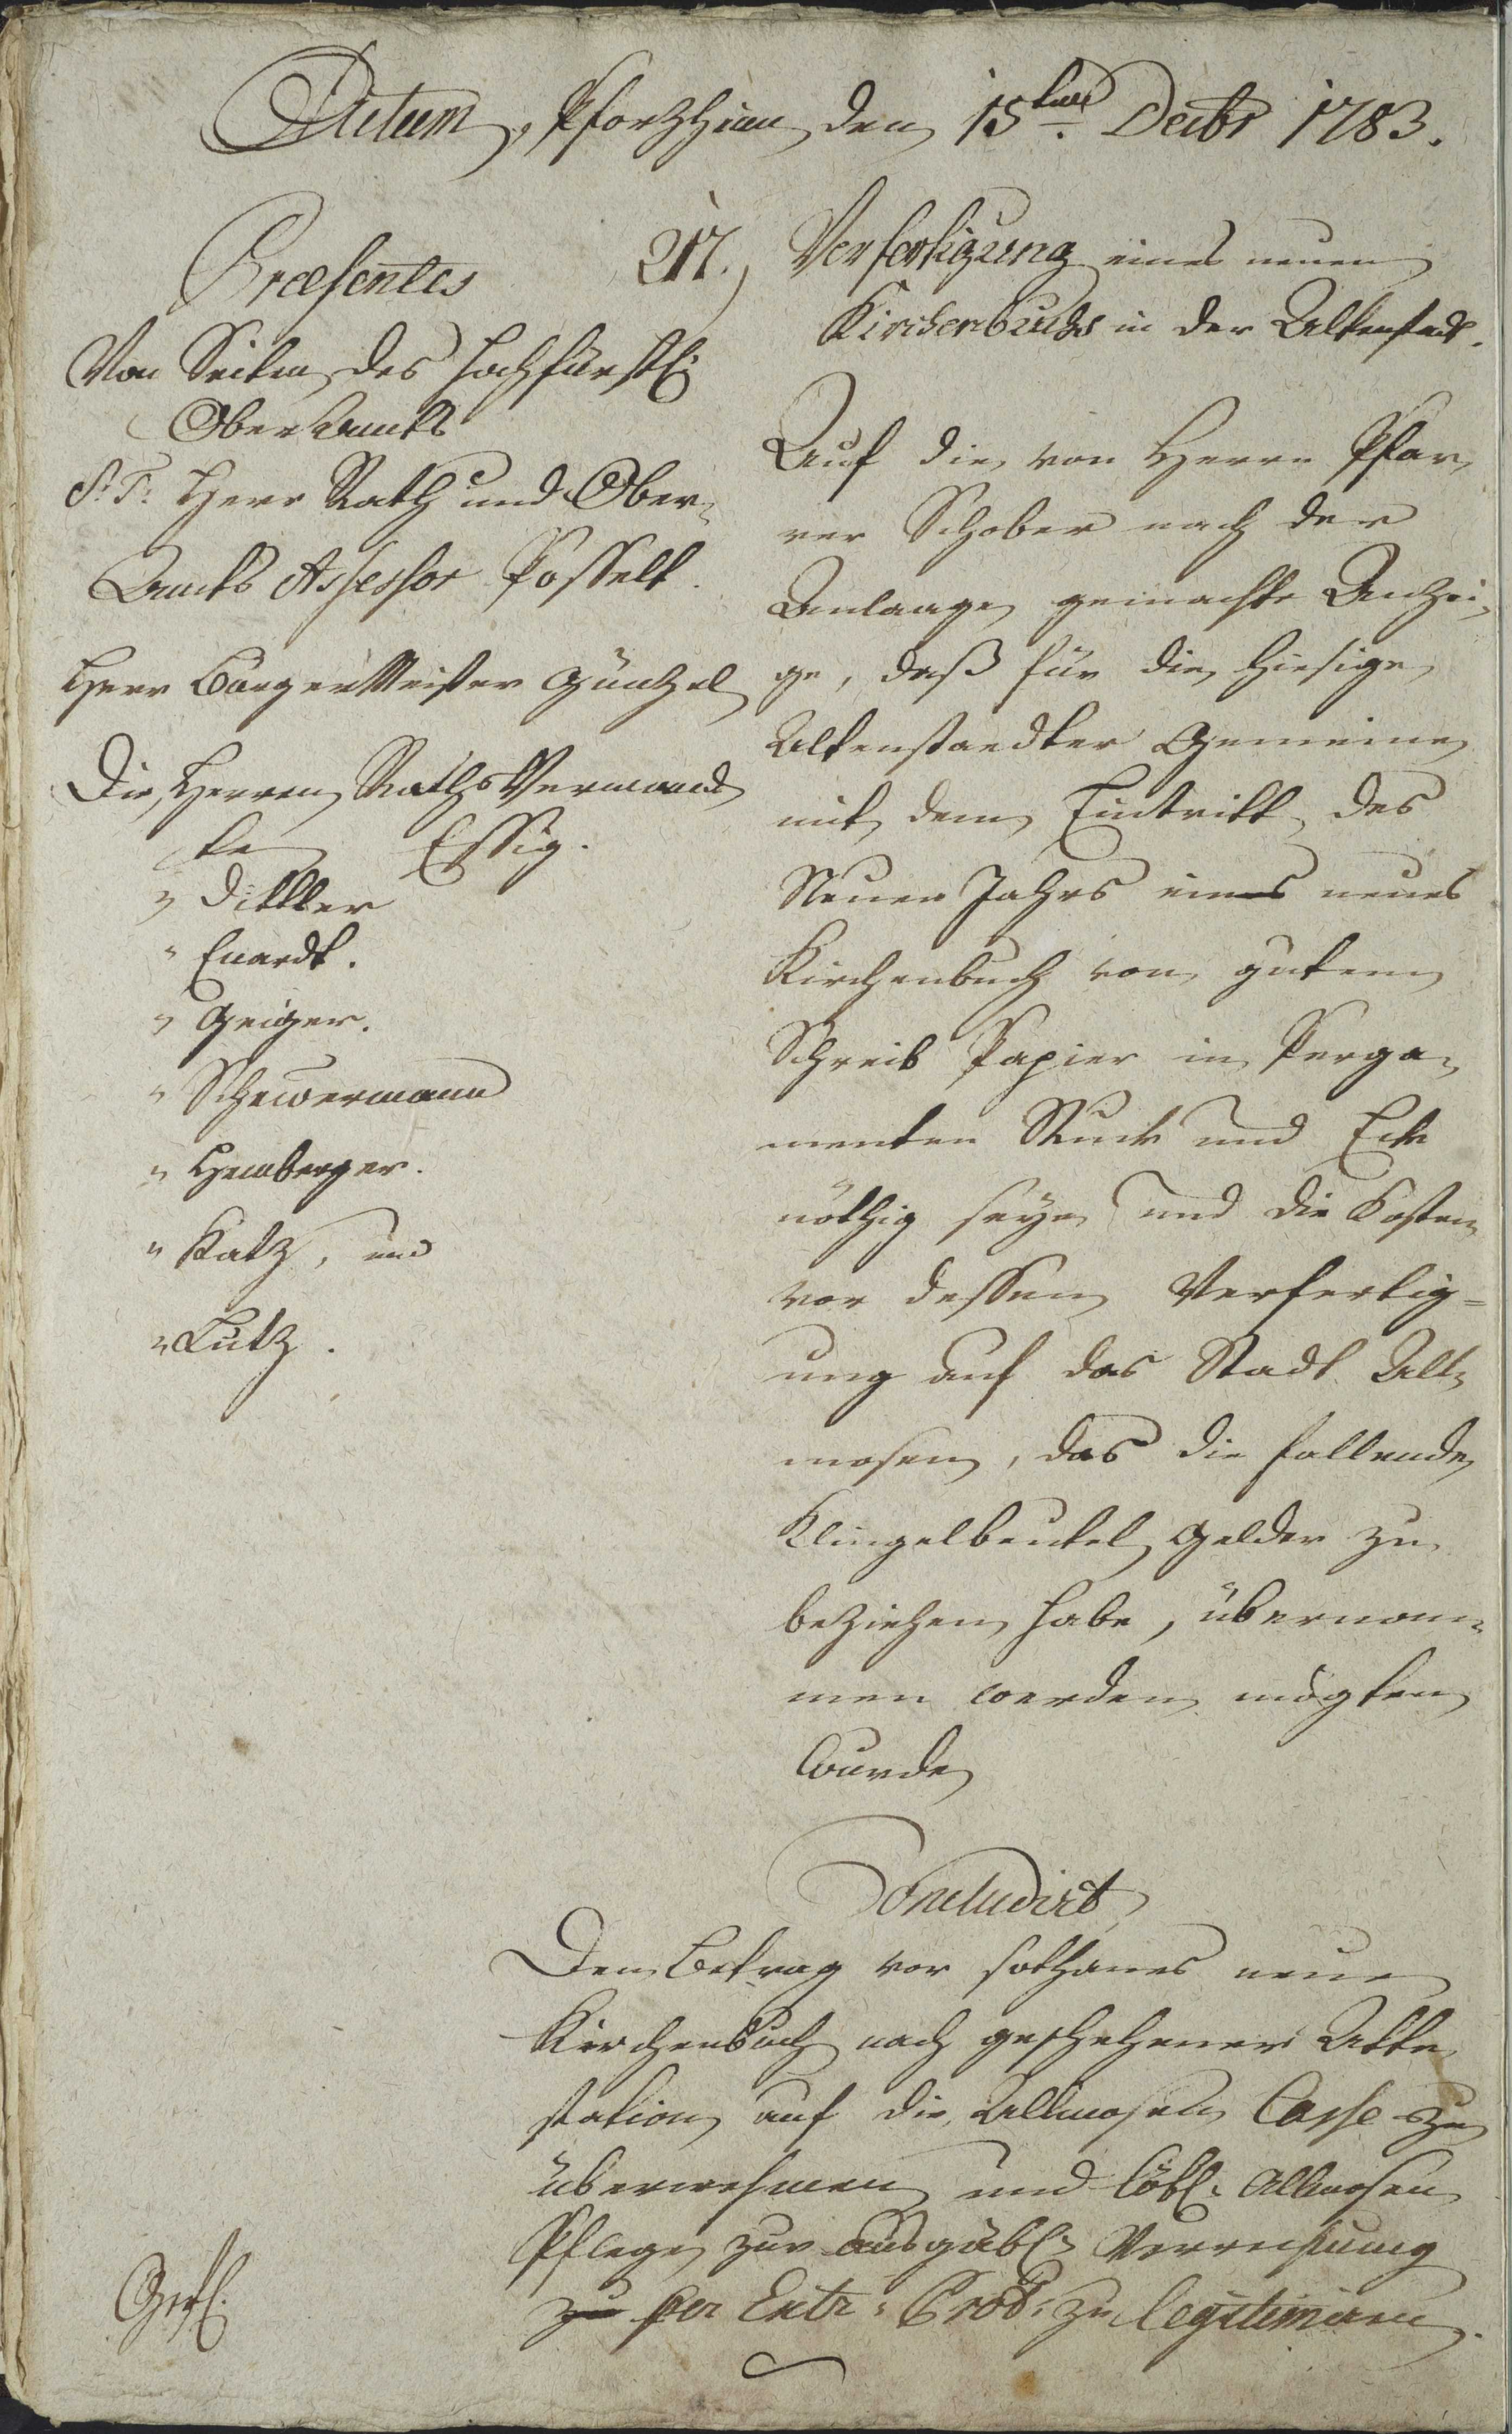 Actum, Pforzheim den 15ten. Decbr 1783.
Præsentes
Von Seiten des Hochfürstl:
Ober Amts
S: T: Herr Rath und Ober-
Amts Assessor Posselt.
Herr BürgerMeister Günzel
Die Herren Raths Verwand
ten Essig.
" Dittler
" Geiger.
" Schewermann
" Hemberger.
" Katz, und
" Lutz.
217.) Verfertigung eines neuen
Kirchenbuchs in der Altenstadt.
Auf die von Herrn Pfar-
rer Schober nach der
Anlaage gemachte Anzei-
ge, daß für die hiesige
Altenstaedter Gemeine
mit dem Eintritt des
Neuen Jahrs eines neues
Kirchenbuch von gutem
Schreib Papier in Perga-
menten Ruck und Eck
nöthig seye und die Kosten
vor dessen Verfertig=
ung auf das Stadt All-
mosen, das die fallende
Klingelbeutel Gelder zu
beziehen habe, übernom-
men werden mögten
Wurde
Concludirt
Den Betrag vor sothanes neue
Kirchenbuch nach geschehener Atte
station auf die Allmosen Casse zu
übernehmen und Löbl: Allmosen
Pflege zur ausgäbl: Verrechnung
zu per Extr: Prot: zu legitimiren.